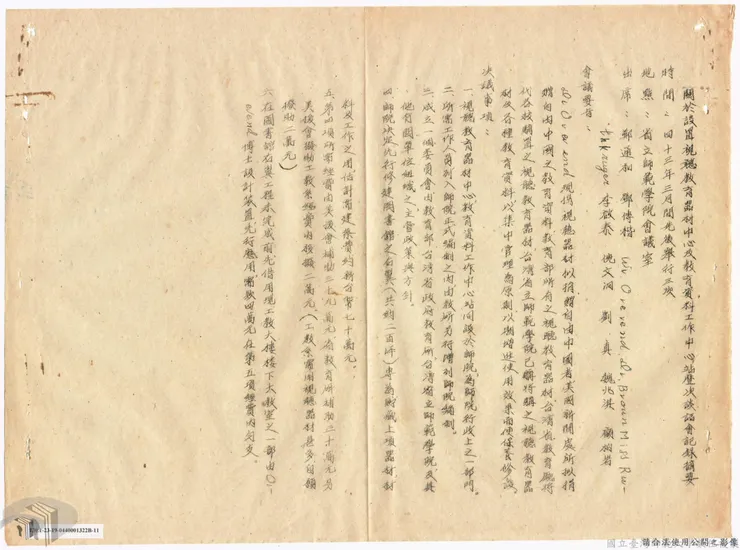 關於設置視聽教育器材中心及教育資料工作中心站歷次談話會紀錄摘要
時間：四十三年三月間先後舉行三次
地點：省立師範學院會議室
出席：鄭通和 鄧傳楷 Mr Overend Dr. Brown Miss Ru-
李敬泰 沈文淵 劉真 魏兆淇 顧
會議要旨：
Dr Overend 現將視聽器材似捐贈自由中國者美國新聞處所擬捐
贈自由中國之教育資料教育部所有之視聽教育器材台灣省教育廳將
代各校購置之視聽教育器材台灣省立師範學院已購將購之視聽教育器
材及各種教育資料以集中管理為原則以期增進使用效果而便保養修護
決議事項：
一、視聽教育器材中心教育資料工作中心站同設於師院為師院行政上之一部門
二、所需工作人員列入師院正式編制之內由教所另行增列師院編制
三、成立一個委員會由教育部台灣省政府教育所台灣省立師範學院及其
他有關單位組織之主管政策與方針
四、師院決定先行修建圖書館之右翼（共約二百坪）專為貯藏上項器材材
料及工作之用估計需建築費約新台幣七十萬元
五、第四項所需經費由美援會補助三十九萬元 教育所補助二十萬元另
美援會補助工教系經費內預撥二萬元（工教系需用視聽器材甚多自願
撥助二萬元）
六、在圖書館右翼工程未完成前先借用現工教大樓樓下大教室之一部由
博士設計裝置先行應用需款四萬元在第五項經費內勻支
J011-23-15-0440001322B-11
國立臺灣
請合法使用公開之影像